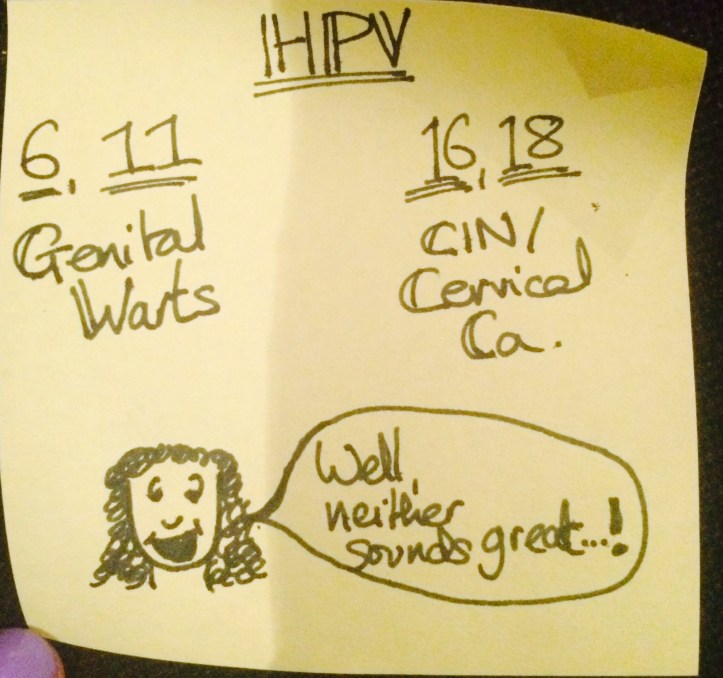 HPV
6, 11
Genital
Warts
16, 18
CIN/
Cervical
Ca.
Well,
neither
sounds great...!